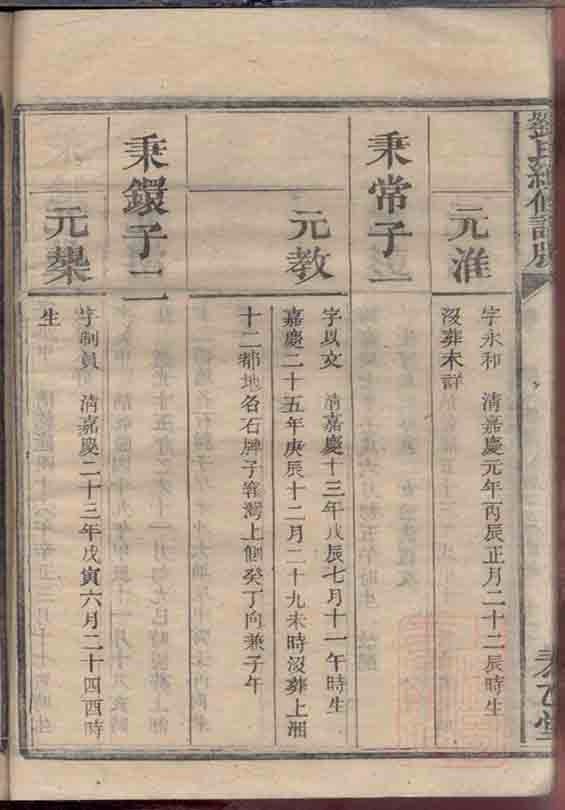 劉氏續修譜牒
元淮
字永和　清嘉慶元年丙辰正月二十二辰時生
沒葬未詳
秉常子一
元教
字以文　清嘉慶十三年戊辰七月十一午時生
嘉慶二十五年庚辰十二月二十九未時沒葬上湘
十二都地名石牌子窰灣上側癸丁向兼子午
秉鐶子二
元榘
字制員　清嘉慶二十三年戊寅六月二十四酉時
生